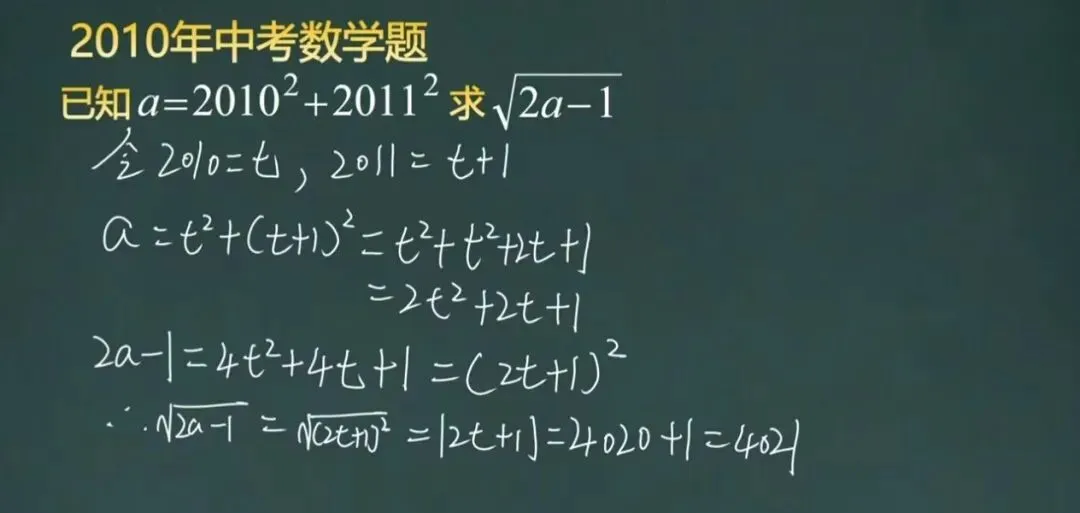 2010年中考数学题
已知a=2010²+2011²求√(2a-1)
令2010=t，2011=t+1
a=t²+(t+1)²=t²+t²+2t+1
=2t²+2t+1
2a-1=4t²+4t+1=(2t+1)²
∴√(2a-1)=√(2t+1)²=|2t+1|=4020+1=4021